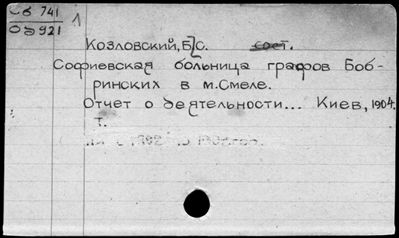 Сб 741
Об 921
1
Козловский, Б.С. сост.
Софиевская больница графов Боб-
ринских в м. Смеле.
Отчет о деятельности... Киев, 1904.
т.